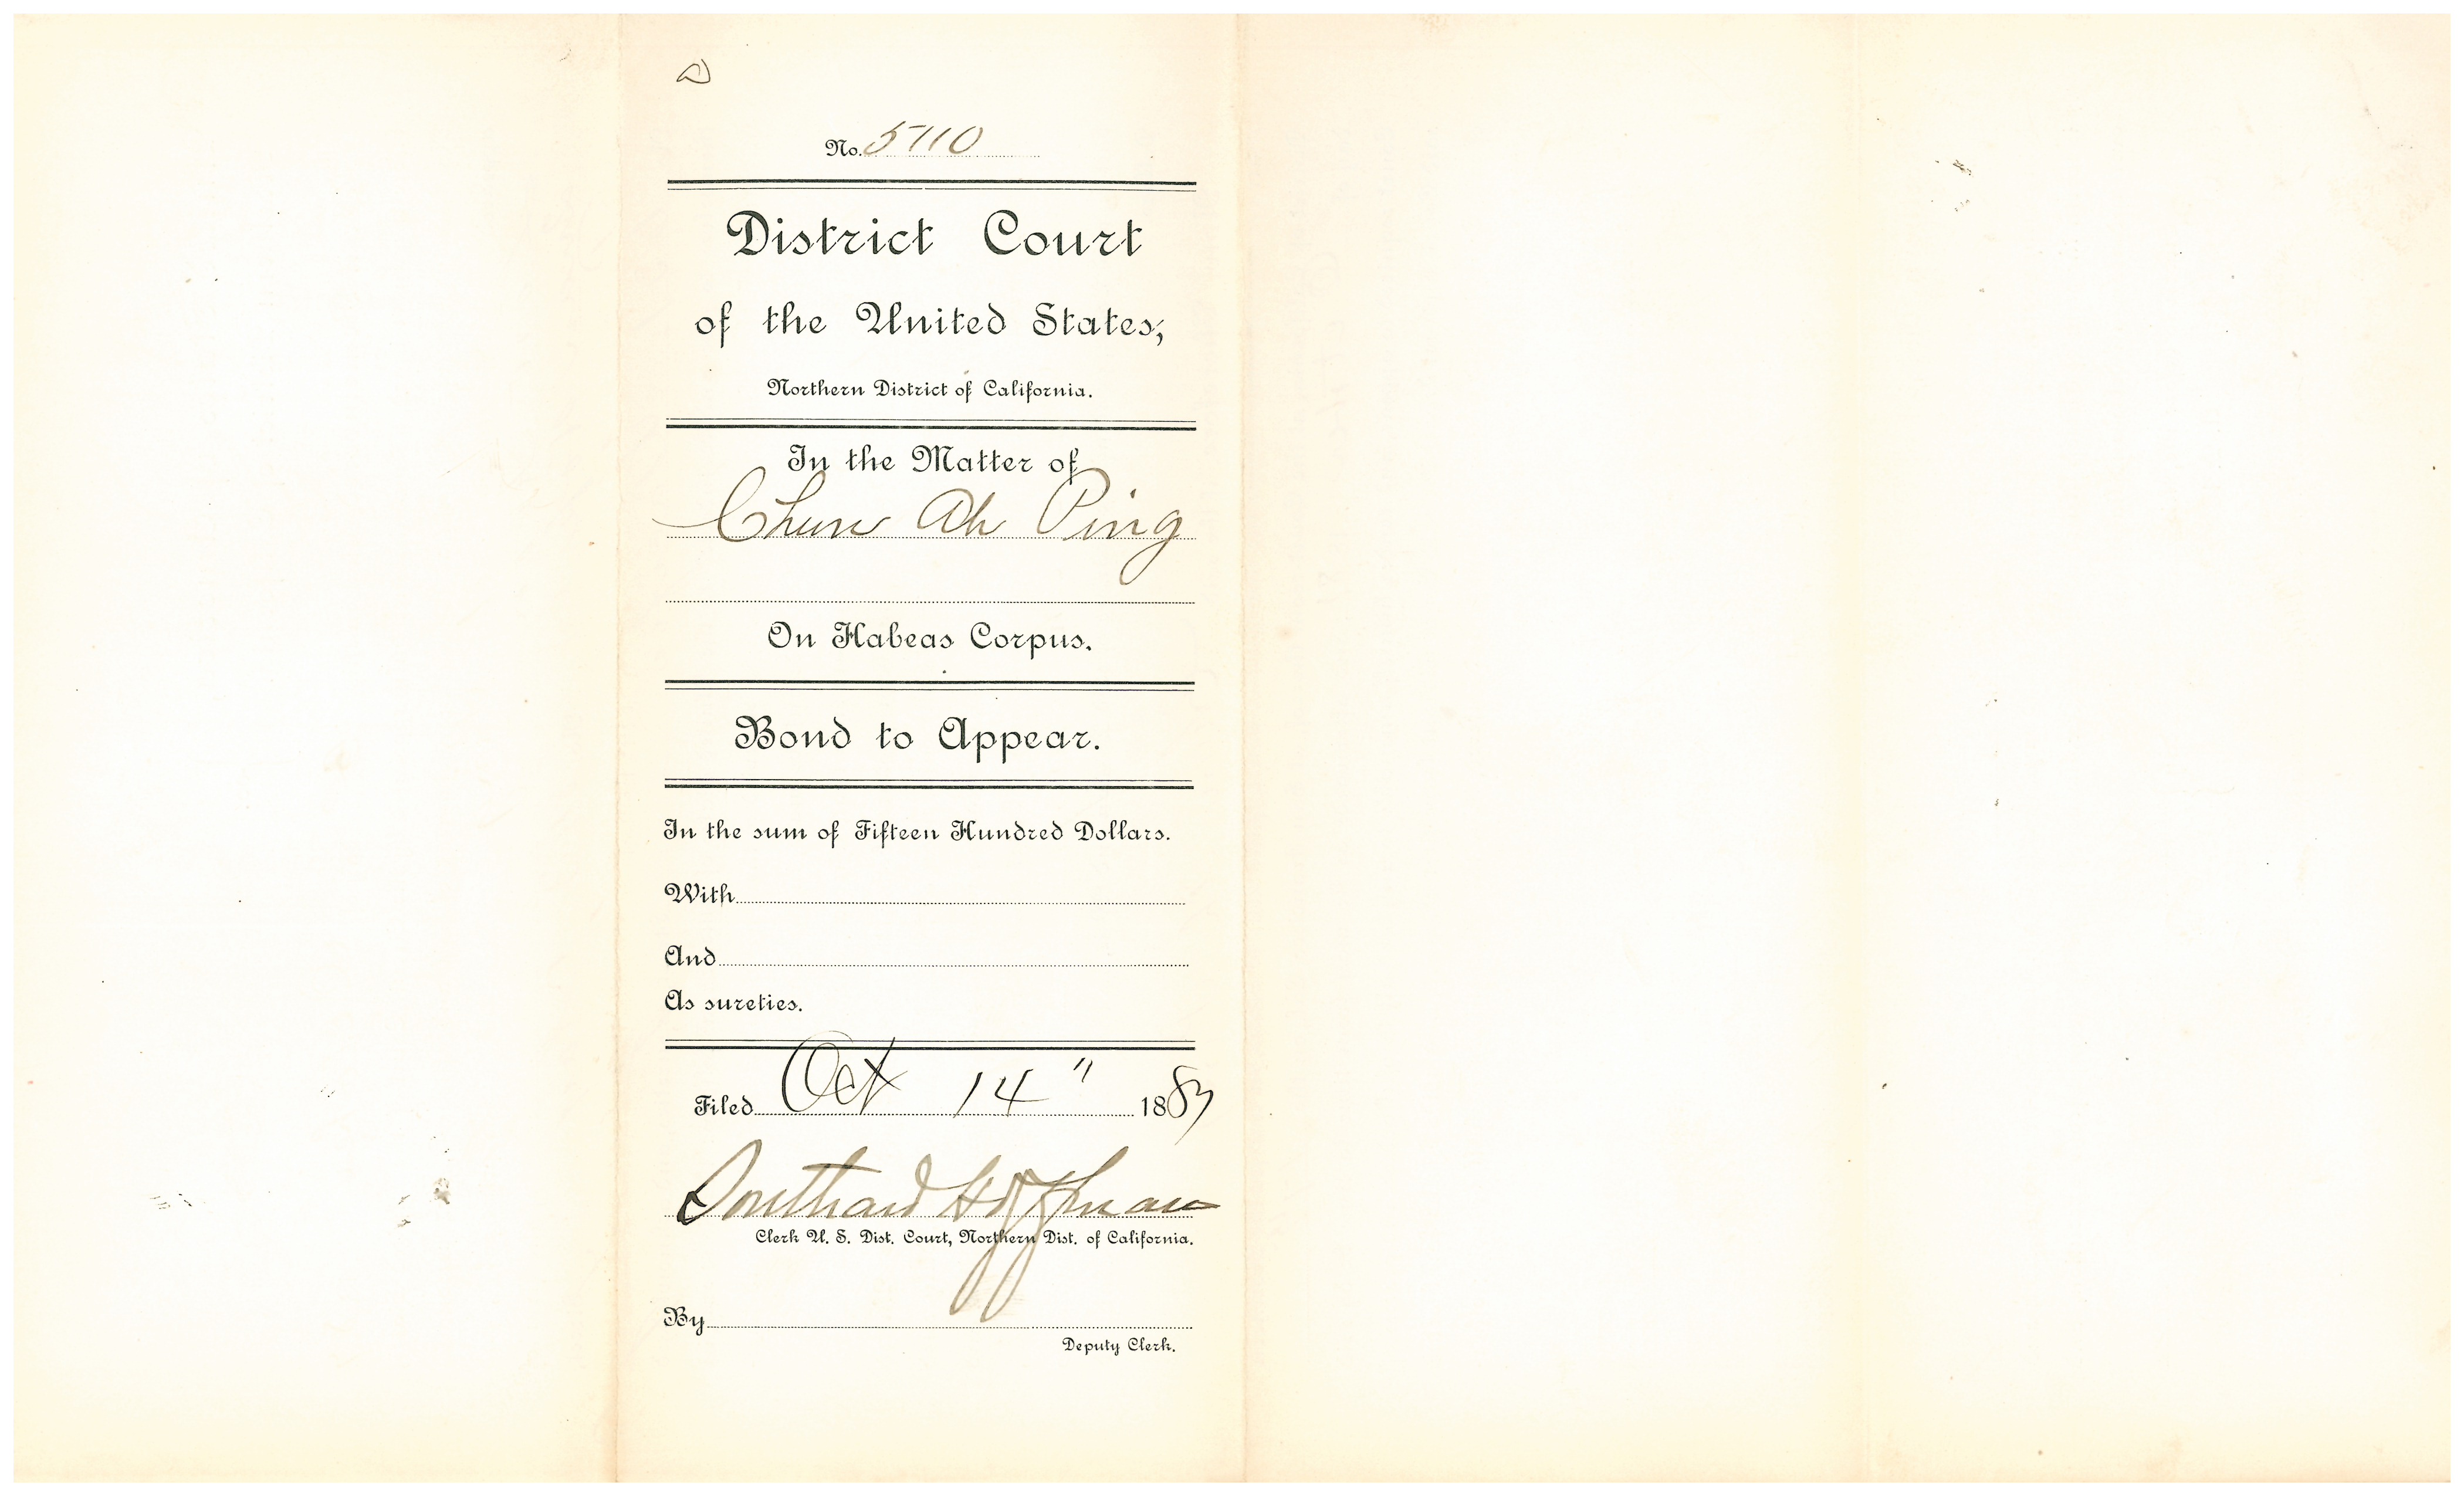 No. 5110
District Court
of the United States,
Northern District of California.
In the Matter of
Chun Ah Ping
On Habeas Corpus.
Bond to Appear.
In the sum of Fifteen Hundred Dollars.
With
And
As sureties.
Filed Oct 14" 1887
Southard Hoffman
Clerk U. S. Dist. Court, Northern Dist. of California.
By
Deputy Clerk.